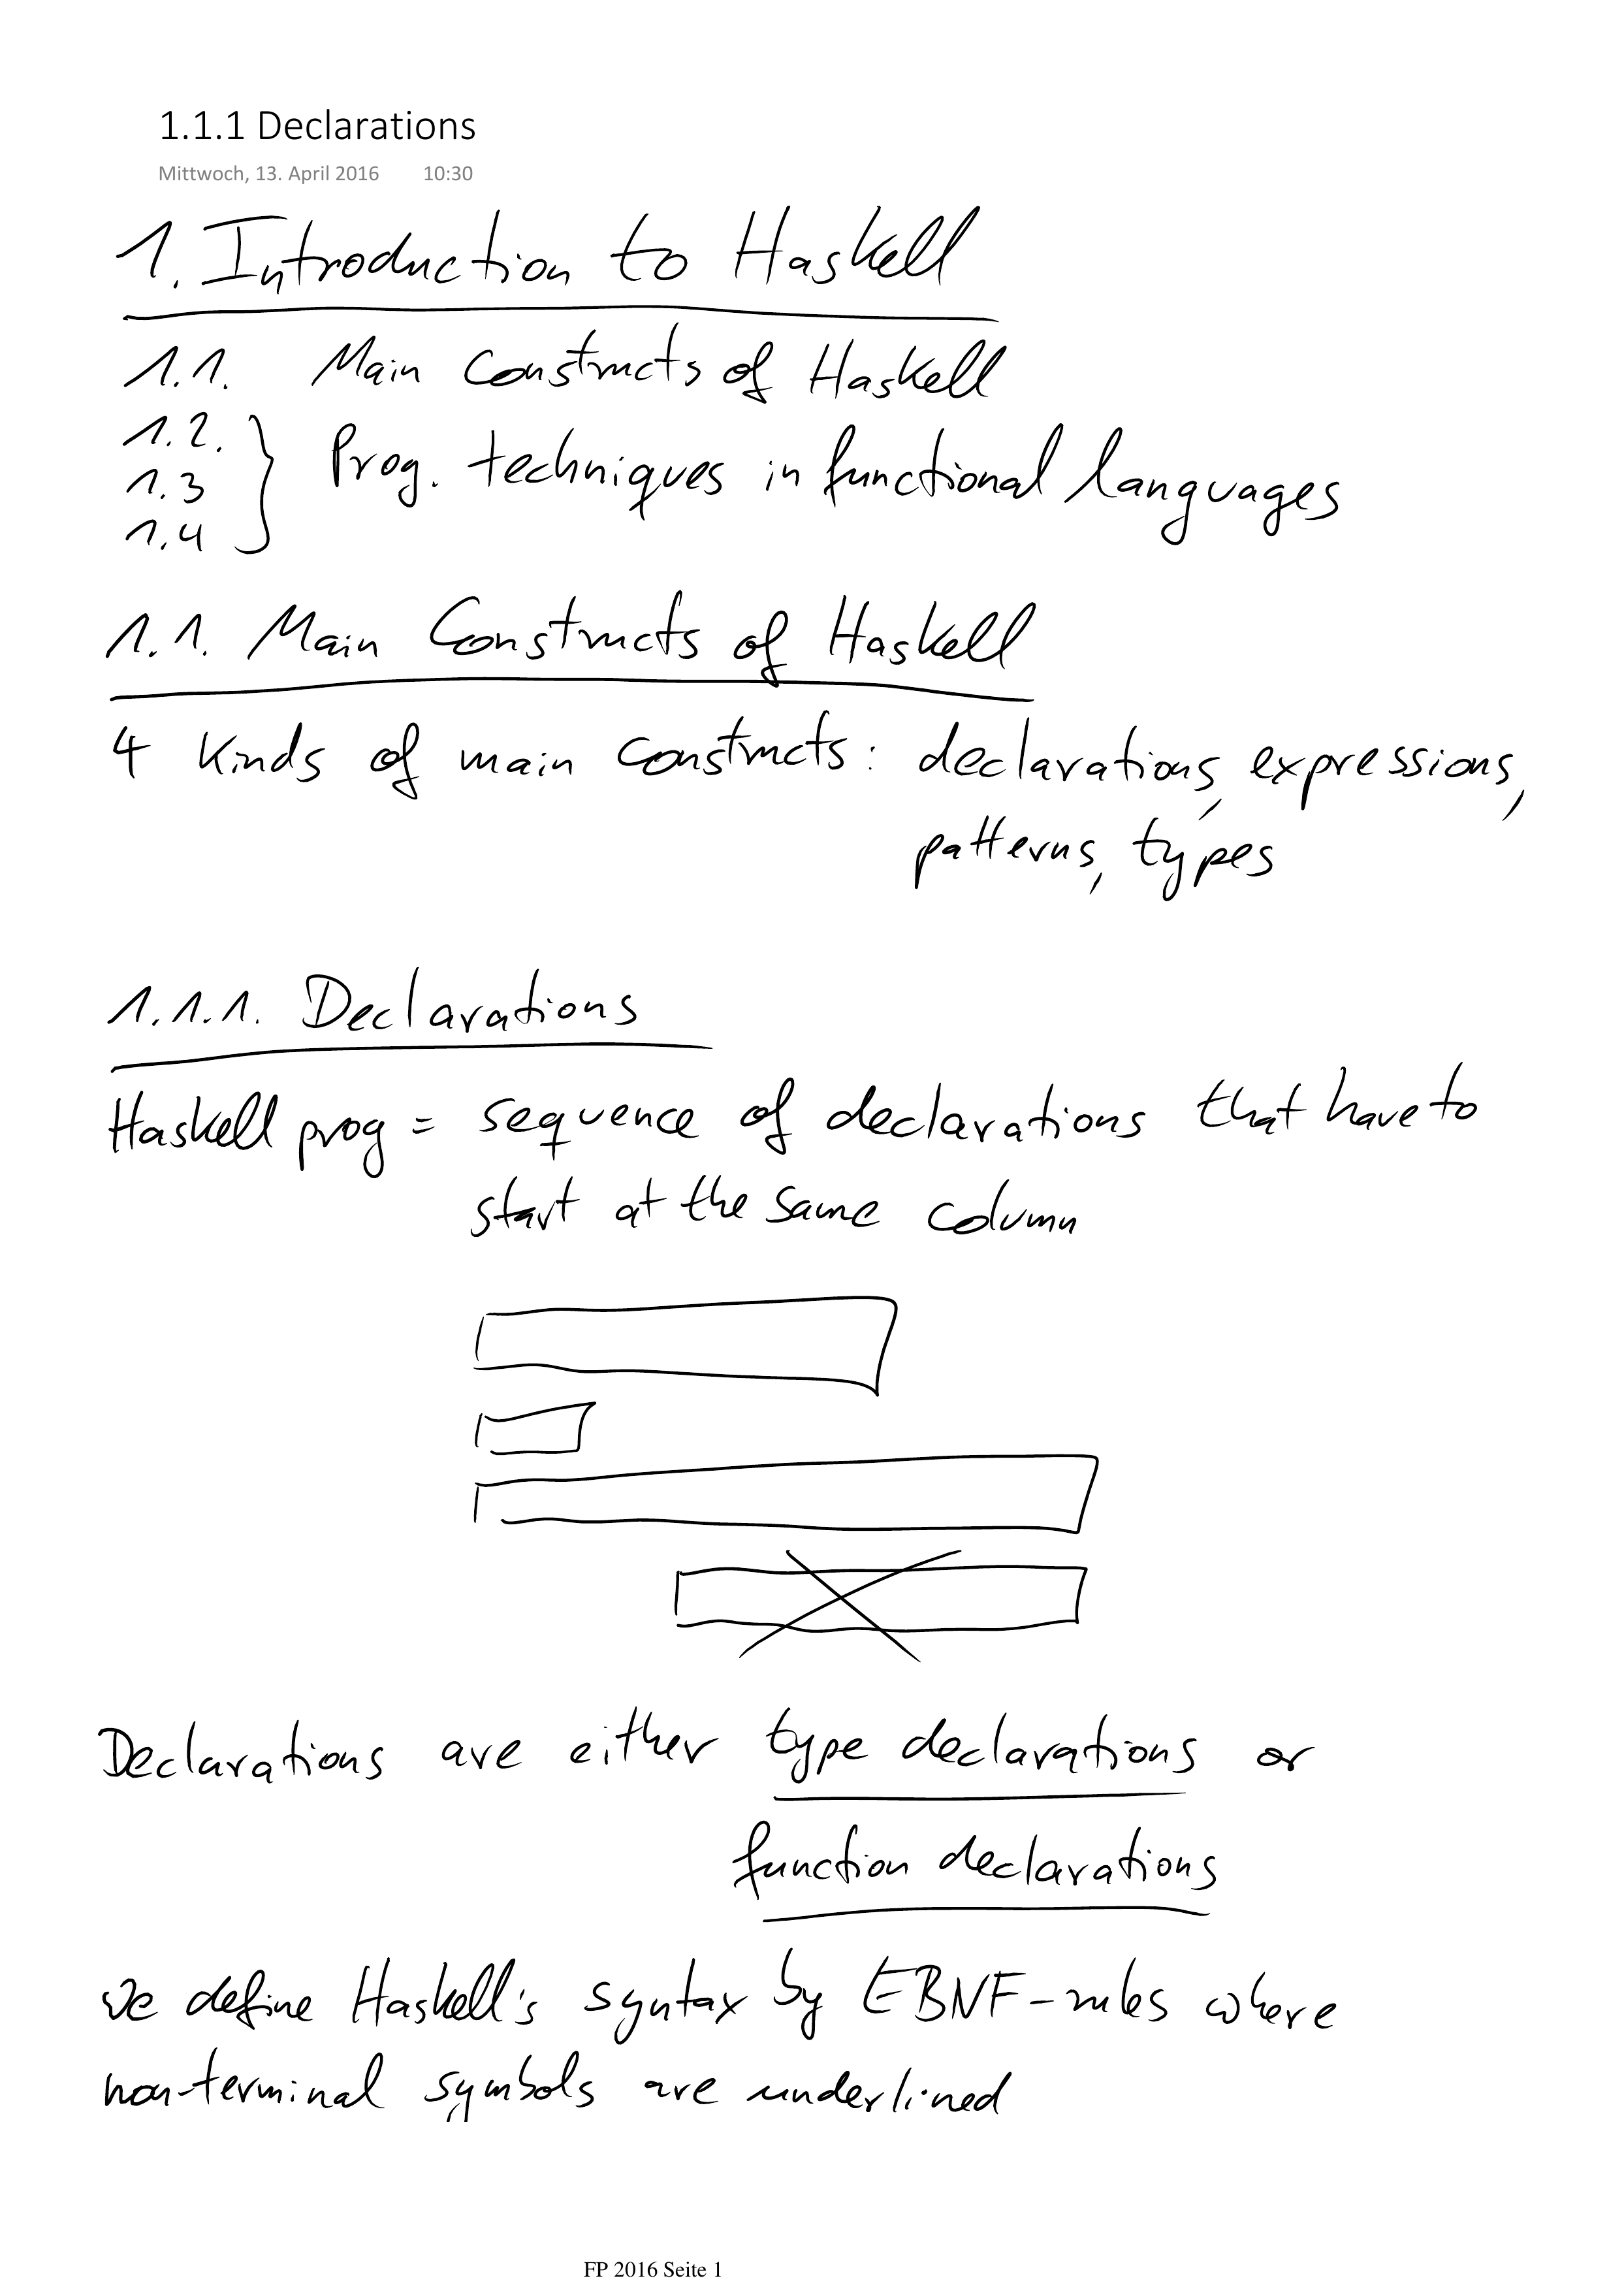 1.1.1 Declarations
Mittwoch, 13. April 2016 10:30
1. Introduction to Haskell
1.1. Main Constructs of Haskell
1.2.
1.3 } Prog. techniques in functional languages
1.4
1.1. Main Constructs of Haskell
4 Kinds of main constructs: declarations, expressions,
patterns, types
1.1.1. Declarations
Haskell prog = sequence of declarations that have to
start at the same column
Declarations are either type declarations or
function declarations
We define Haskell's syntax by EBNF-rules where
non-terminal symbols are underlined
FP 2016 Seite 1